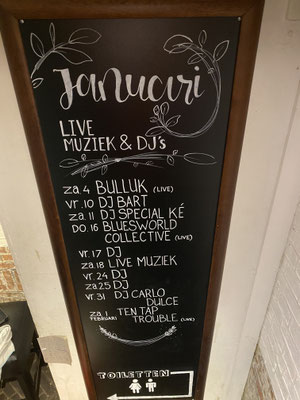 Januari
LIVE
MUZIEK & DJ's
za.4 BULLUK (LIVE)
vr.10 DJ BART
za.11 DJ SPECIAL KÉ
DO.16 BLUESWORLD
COLLECTIVE (LIVE)
vr.17 DJ
za.18 LIVE MUZIEK
vr.24 DJ
za.25 DJ
vr.31 DJ CARLO
DULCE
za.1 TEN TAP
FEBRUARI TROUBLE (LIVE)
TOILETTEN